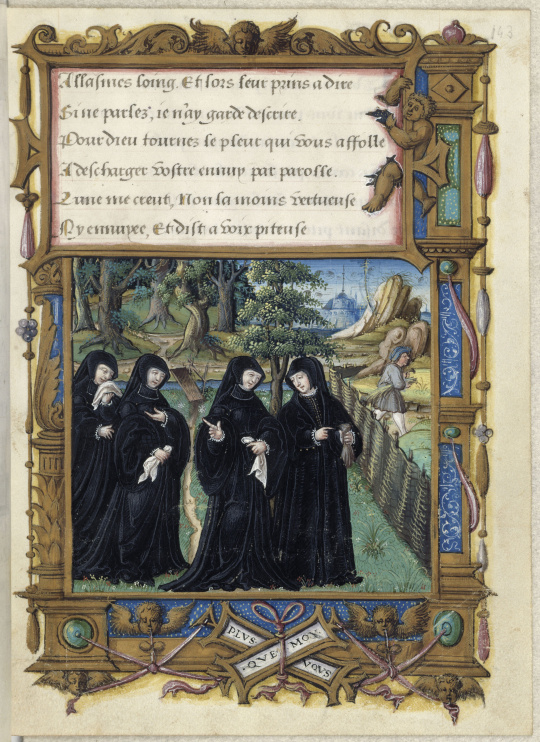 143
Allasmes loing. Et lors leur prins a dire
Si ne parlez, ie n'ay garde descrire.
Pour dieu tournez le pleur qui vous affolle
A descharger vostre ennuy par parolle.
Lune me creut, Non la moins vertueuse
Ny ennuyee, Et dist a voix piteuse
PLVS MOY
QVE VOVS